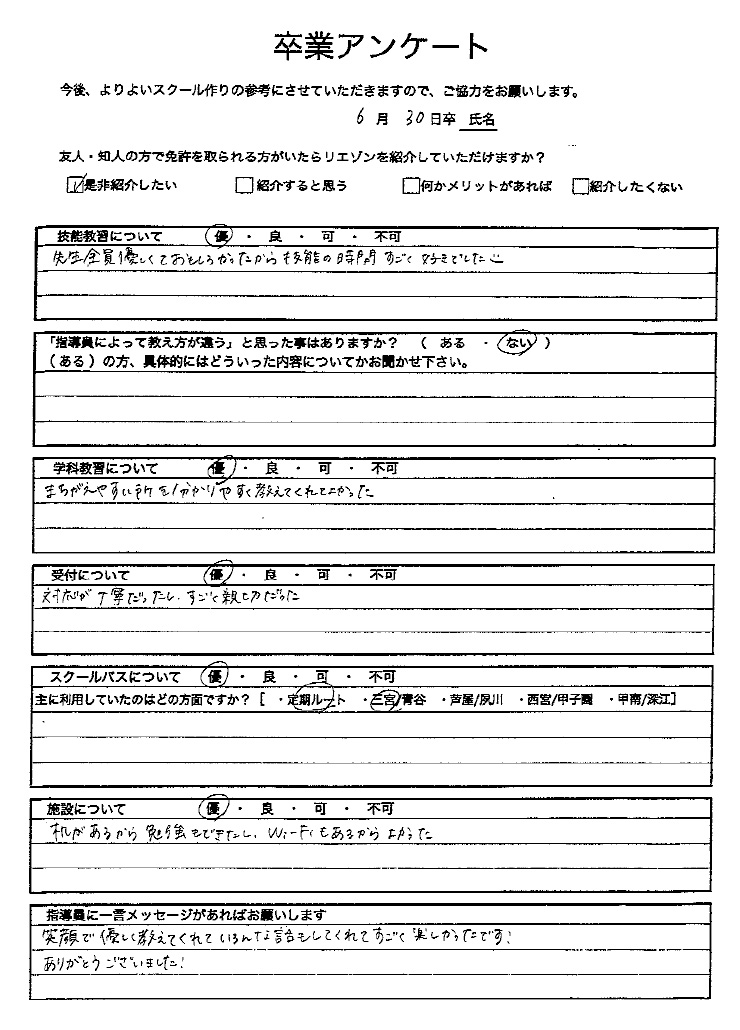 卒業アンケート
今後、よりよいスクール作りの参考にさせていただきますので、ご協力をお願いします。
6月 30日卒 氏名
友人・知人の方で免許を取られる方がいたらリエゾンを紹介していただけますか?
是非紹介したい 紹介すると思う 何かメリットがあれば 紹介したくない
技能教習について 優 ・ 良 ・ 可 ・ 不可
先生全員優しくておもしろかったから技能の時間すごく好きでした
「指導員によって教え方が違う」と思った事はありますか? ( ある ・ ない )
(ある)の方、具体的にはどういった内容についてかお聞かせ下さい。
学科教習について 優 ・ 良 ・ 可 ・ 不可
まちがえやすい所を分かりやすく教えてくれてよかった
受付について 優 ・ 良 ・ 可 ・ 不可
対応が丁寧だったし、すごく親切だった
スクールバスについて 優 ・ 良 ・ 可 ・ 不可
主に利用していたのはどの方面ですか?[ ・定期ルート ・三宮/青谷 ・芦屋/夙川 ・西宮/甲子園 ・甲南/深江]
施設について 優 ・ 良 ・ 可 ・ 不可
机があるから勉強もできたし、Wi-Fiもあるからよかった
指導員に一言メッセージがあればお願いします
笑顔で優しく教えてくれていろんな話もしてくれてすごく楽しかったです!
ありがとうございました!